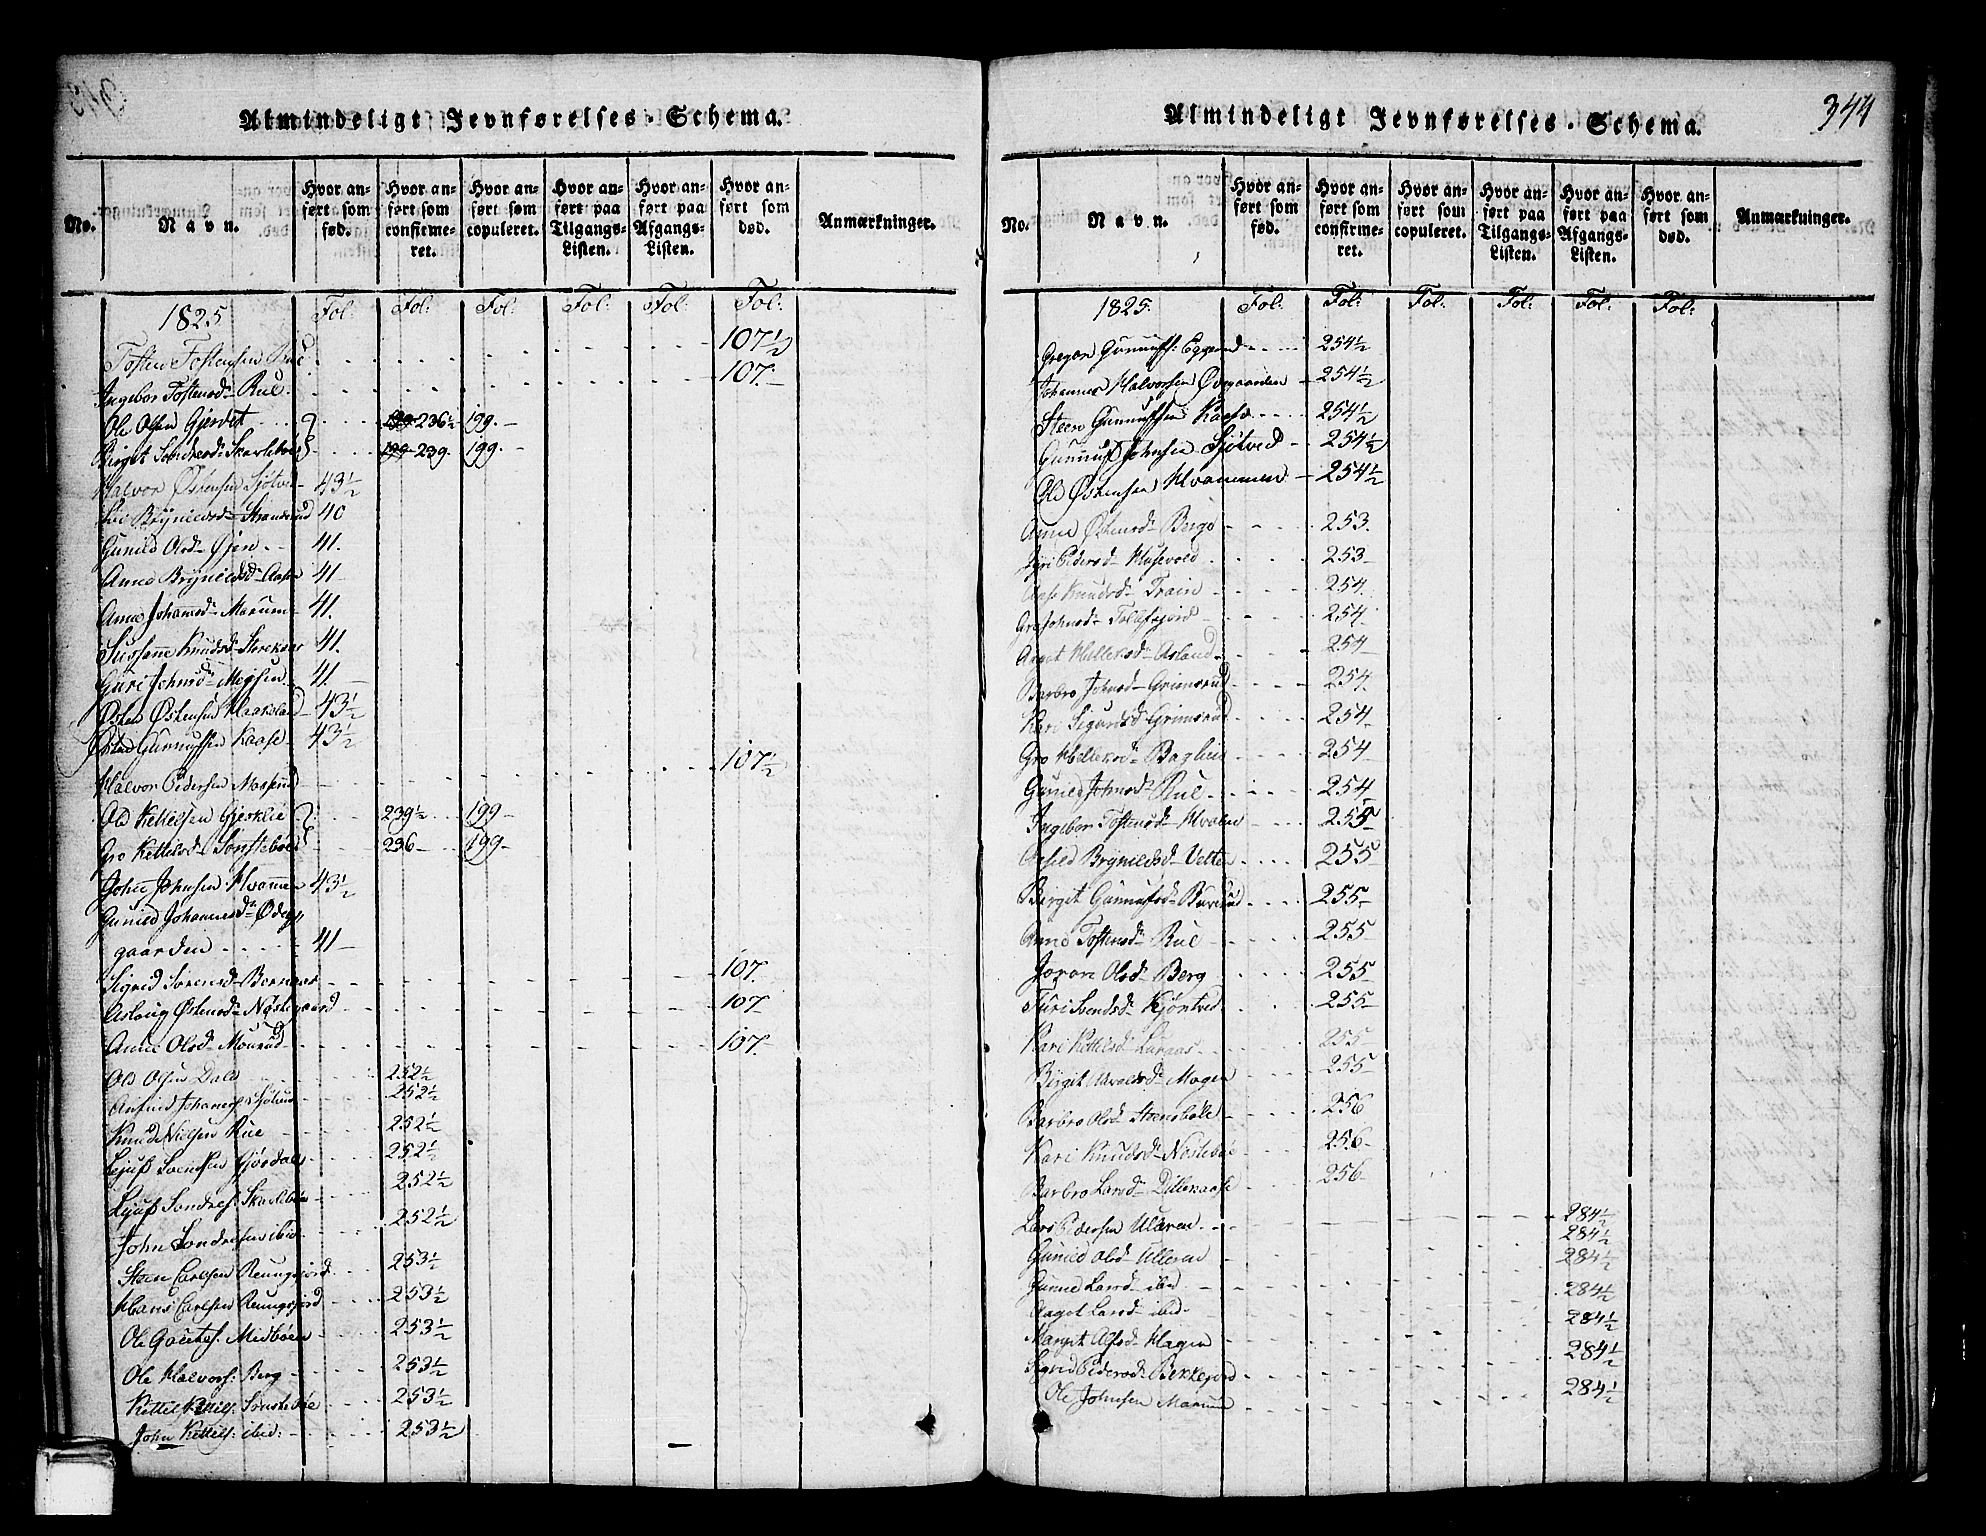 Almindeligt Jevnførelses-Schema.
No.
Navn.
Hvor anført som fød.
Hvor anført som confirmeret.
Hvor anført som copuleret.
Hvor anført paa Tilgangs-Listen.
Hvor anført paa Afgangs-Listen.
Hvor anført som død.
Anmærkninger.
1825 Fol: Fol: Fol: Fol: Fol: Fol:
Tosten Tostensen Rue 107½
Ingebor Tostensd Rue 107.
Ole Olsen Gjerdet 199 236½ 199.
Birget Sondresd: 199 239. 199.
Halvor Østensen 43½
Brynildsd 40
Gunild Olsd Øjen 41.
Anne Brynildsd Aasen 41
Anne Johannesd Marum 41.
Sussane Knudsd 41.
Guri Johnsd Mejsen 41.
Østen Østensen Haakaland 43½
Østen Gunnufsen Kaase 43½
Halvor Pedersen 107½
Ole Kettelsen Gjerklie 239½ 199
Gro Kettelsd Sønstebøe 236 199
John Johnsen Hvammen 43½
Gunild Johannesd Ødeg
gaarden 41
Sigrid Sørensd Bernaas 107.
Aslaug Østensd 107
Anne Olsd 107.
Ole Olsen Dale 252½
Johannes 252½
Knud Nielsen Rue 252½
Svendsen 252½
Sondres: Skarlebøe 252½
John Sondresen ibid 252½
Steen Carlsen Reungsjord 253½
Hans Carlsen Reungsjord 253½
Ole Gautes: Midbøen 253½
Ole Halvors: Berg 253½
Kettel Kettels: Sønstebøe 253½
John Kettels: ibid: 253½
Almindeligt Jevnførelses-Schema.
344
No.
Navn.
Hvor anført som fød.
Hvor anført som confirmeret.
Hvor anført som copuleret.
Hvor anført paa Tilgangs-Listen.
Hvor anført paa Afgangs-Listen.
Hvor anført som død.
Anmærkninger.
1825. Fol: Fol: Fol: Fol: Fol: Fol:
Gregar Gunnufs: 254½
Johannes Halvorsen Øvgaarden 254½
Steen Gunnufsen Kaase 254½
Gunnuf Johnsen Sjøtved 254½
Ole Østensen Hvammen 254½
Anne Østensd Berge 253.
Pedersd Husevold 253
Aase Knudsd Traen 254.
Gro Johnsd 254.
Aagot Helleksd Asland 254
Barbro Johnsd Grimsrud 254.
Kari Sigurdsd Grimsrud 254
Gro Helleksd Baglien 254
Gunild Johnsd Rue 254
Ingebor Tostensd Hvalen 255
Brynildsd Vetten 255
Birget Gunnufsd 255
Anne Tostensd Rue 255
Joron Olsd Berg 255
Turi Svendsd Kjøntved 255
Kari Kettelsd Luraas 255
Birget Mogen 255
Barbro Olsd Steensbøle 256
Kari Knudsd 256
Barbro Larsd 256
Lars Pedersen Ulleren 284½
Gunild Olsd Ulleren 284½
Gunild Larsd ibid 284½
Aagot Larsd ibid 284½
Margit Olsd Hagen 284½
Sigrid Pedersd Bekkejord 284½
Ole Johnsen Marum 284½